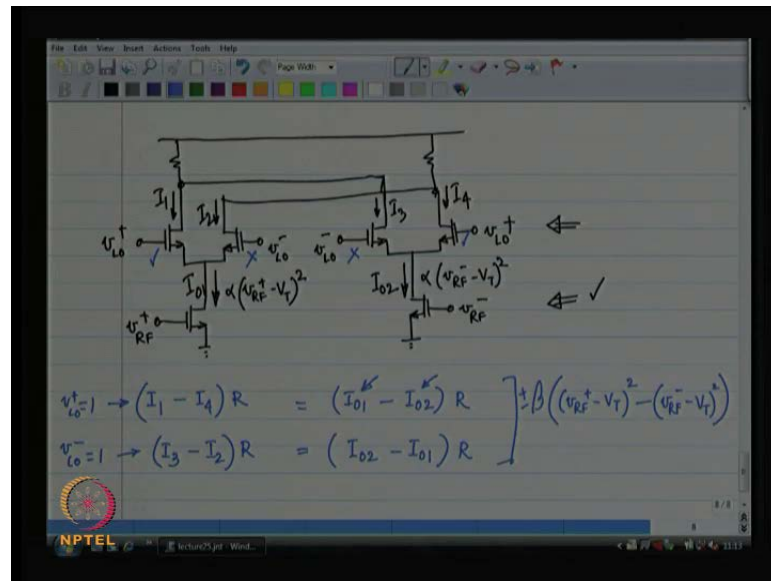 File Edit View Insert Actions Tools Help
Page Width
B I
I₁ I₂ I₃ I₄
v_LO⁺ v_LO⁻ v_LO⁻ v_LO⁺
I₀₁ α(v_RF⁺ - V_T)² I₀₂ α(v_RF⁻ - V_T)²
v_RF⁺ v_RF⁻ ✓
v_LO⁺=1 → (I₁ - I₄) R = (I₀₁ - I₀₂) R ] ± β((v_RF⁺ - V_T)² - (v_RF⁻ - V_T)²)
v_LO⁻=1 → (I₃ - I₂) R = (I₀₂ - I₀₁) R
8/8
8
NPTEL
lecture25.jnt - Wind...
11:13